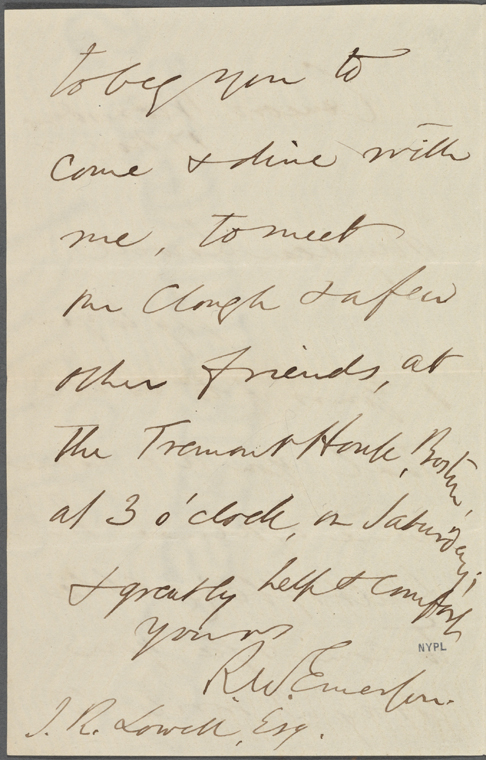 to beg you to
come & dine with
me, to meet
Mr Clough & a few
other friends, at
the Tremont House, Boston,
at 3 o'clock, on Saturday;
& greatly help & comfort
yours
R. W. Emerson.
J. R. Lowell, Esq.
NYPL